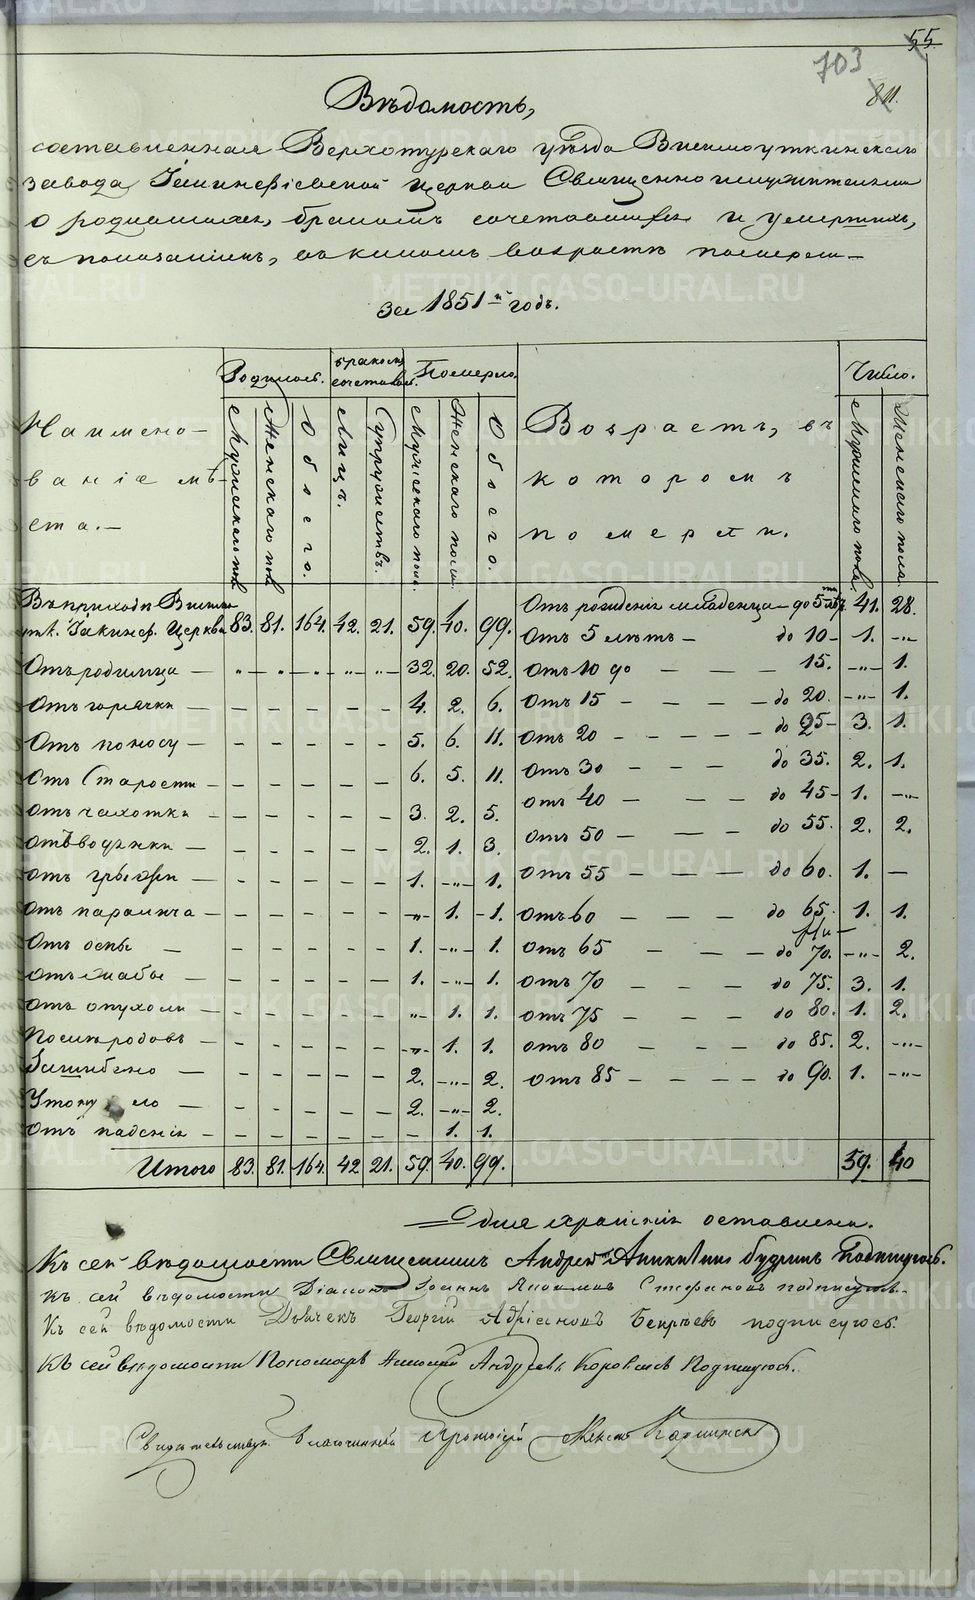 55
703
811.
Вѣдомость,
составленная Верхотурскаго уѣзда Висимоуткинскаго
завода, Іакинфіевской церкви Священноцерковнослужителями
о родившихся, бракомъ сочетавшихся и умершихъ,
съ показаніемъ, въ какомъ возрастѣ померли
за 1851й годъ.
Наимено-
ваніе мѣ-
ста.
Родилось.
Мужескаго пола
Женскаго пола
Обоего.
Бракомъ сочеталось.
Лицъ.
Супружествъ.
Померло.
Мужескаго пола.
Женскаго пола
Обоего.
Возрастъ, въ
которомъ
померли.
Число.
Мужескаго пола.
Женскаго пола.
Въ приходѣ Висимо-
утк. Іакинф. Церкви 83. 81. 164. 42. 21. 59. 40. 99. Отъ рожденія младенца до 5 41. 28.
Отъ 5 лѣтъ до 10 1. -"-
Отъ родимца -"- -"- -"- -"- -"- 32. 20. 52. Отъ 10 до 15. -"- 1.
Отъ горячки 4. 2. 6. Отъ 15 до 20. -"- 1.
Отъ поносу 5. 6. 11. Отъ 20 до 25 3. 1.
Отъ Старости 6. 5. 11. Отъ 30 до 35. 2. 1.
Отъ чахотки 3. 2. 5. отъ 40 до 45 1. -"-
Отъ водянки 2. 1. 3. отъ 50 до 55. 2. 2.
Отъ грыжи 1. -"- 1. отъ 55 до 60. 1. —
Отъ паралича -"- 1. 1. отъ 60 до 65. 1. 1.
Отъ оспы 1. -"- 1. отъ 65 до 70. -"- 2.
Отъ жабы 1. -"- 1. отъ 70 до 75. 3. 1.
Отъ опухоли -"- 1. 1. отъ 75 до 80. 1. 2.
Послѣ родовъ -"- 1. 1. отъ 80 до 85. 2. -"-
Зашибено 2. -"- 2. отъ 85 до 90. 1. -"-
Утонуло 2. -"- 2.
Отъ паденія — 1. 1.
Итого 83. 81. 164. 42 21. 59. 40. 99. 59. 40
для храненія оставлена.
Къ сей вѣдомости Священникъ Андрей Аникинъ Будринъ подписуюсь.
Къ сей вѣдомости Діаконъ Іоаннъ Стефановъ подписуюсь.
Къ сей вѣдомости Дьячекъ Георгій Адріановъ Бекрѣевъ подписуюсь.
Къ сей вѣдомости Пономарь Андреевъ Коровинъ Подписуюсь.
Свидѣтельствую Благочинный Протоіерей
METRIKI.GASO-URAL.RU